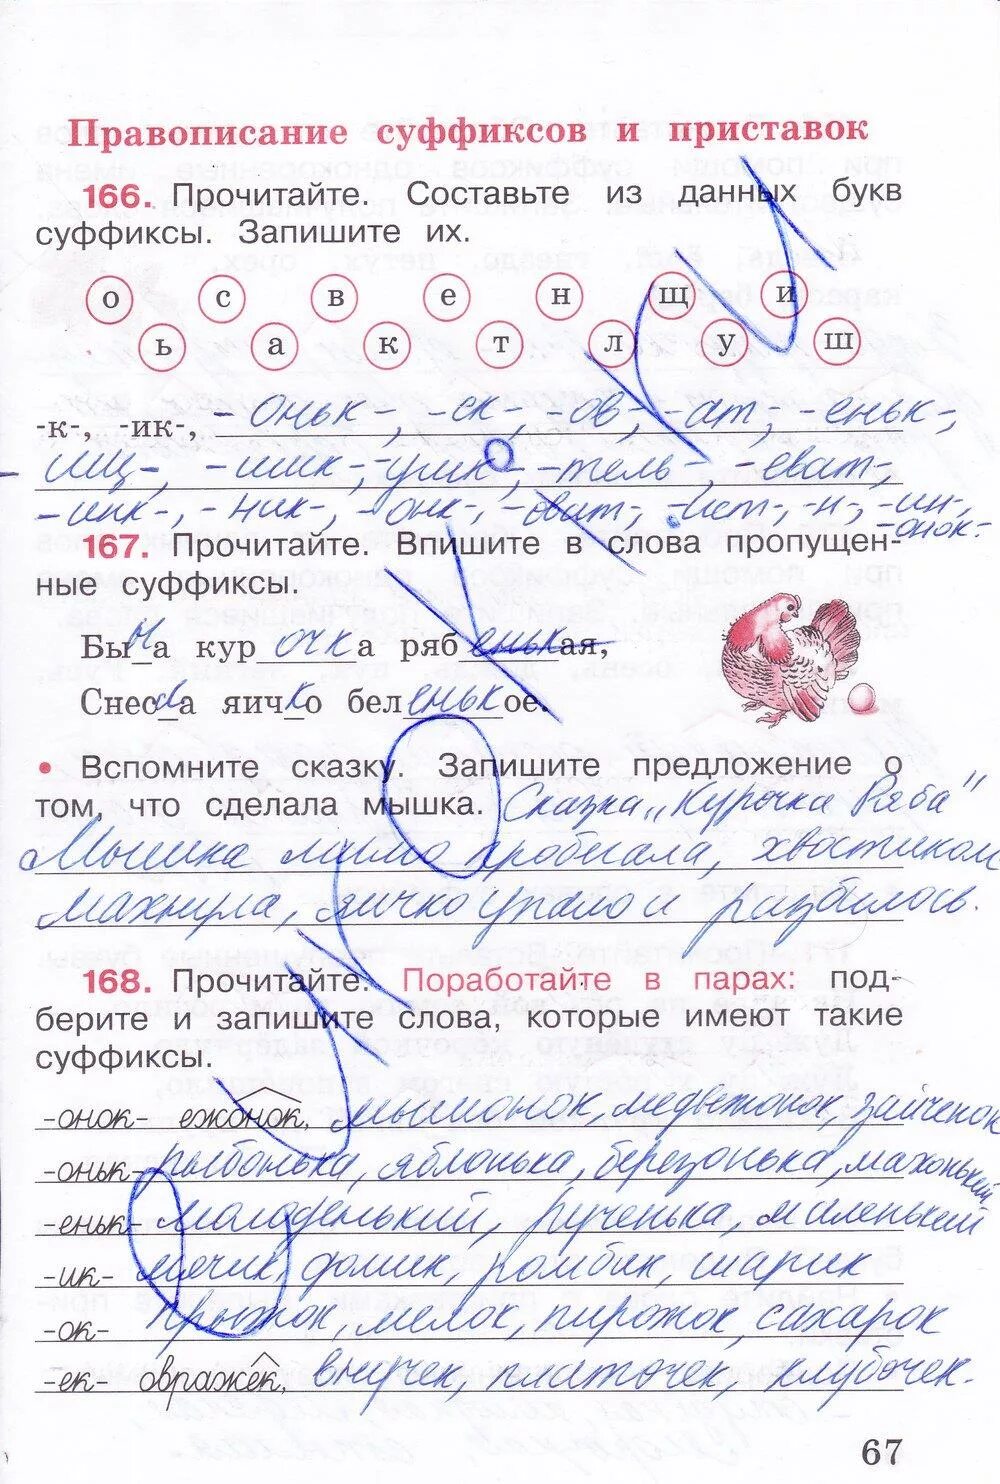 Правописание суффиксов и приставок
166. Прочитайте. Составьте из данных букв
суффиксы. Запишите их.
о с в е н щ и
ь а к т л у ш
-к-, -ик-, -оньк-, -ск-, -ов-, -ат-, -еньк-,
-ищ-, -ишк-, -ушк-, -тель-, -еват-,
-инк-, -ник-, -онк-, -оват-, -ист-, -н-, -ин-,
-онок-
167. Прочитайте. Впишите в слова пропущен-
ные суффиксы.
Была курочка рябенькая,
Снесла яичко беленькое.
• Вспомните сказку. Запишите предложение о
том, что сделала мышка. Сказка "Курочка Ряба"
Мышка мимо пробегала, хвостиком
махнула, яичко упало и разбилось.
168. Прочитайте. Поработайте в парах: под-
берите и запишите слова, которые имеют такие
суффиксы.
-онок- ежонок, мышонок, медвежонок, зайчонок
-оньк- рыбонька, яблонька, березонька, махонький
-еньк- молоденький, рученька, миленький
-ик- мячик, домик, ромбик, шарик
-ок- прыжок, мелок, пирожок, сахарок
-ек- овражек, внучек, платочек, клубочек.
67